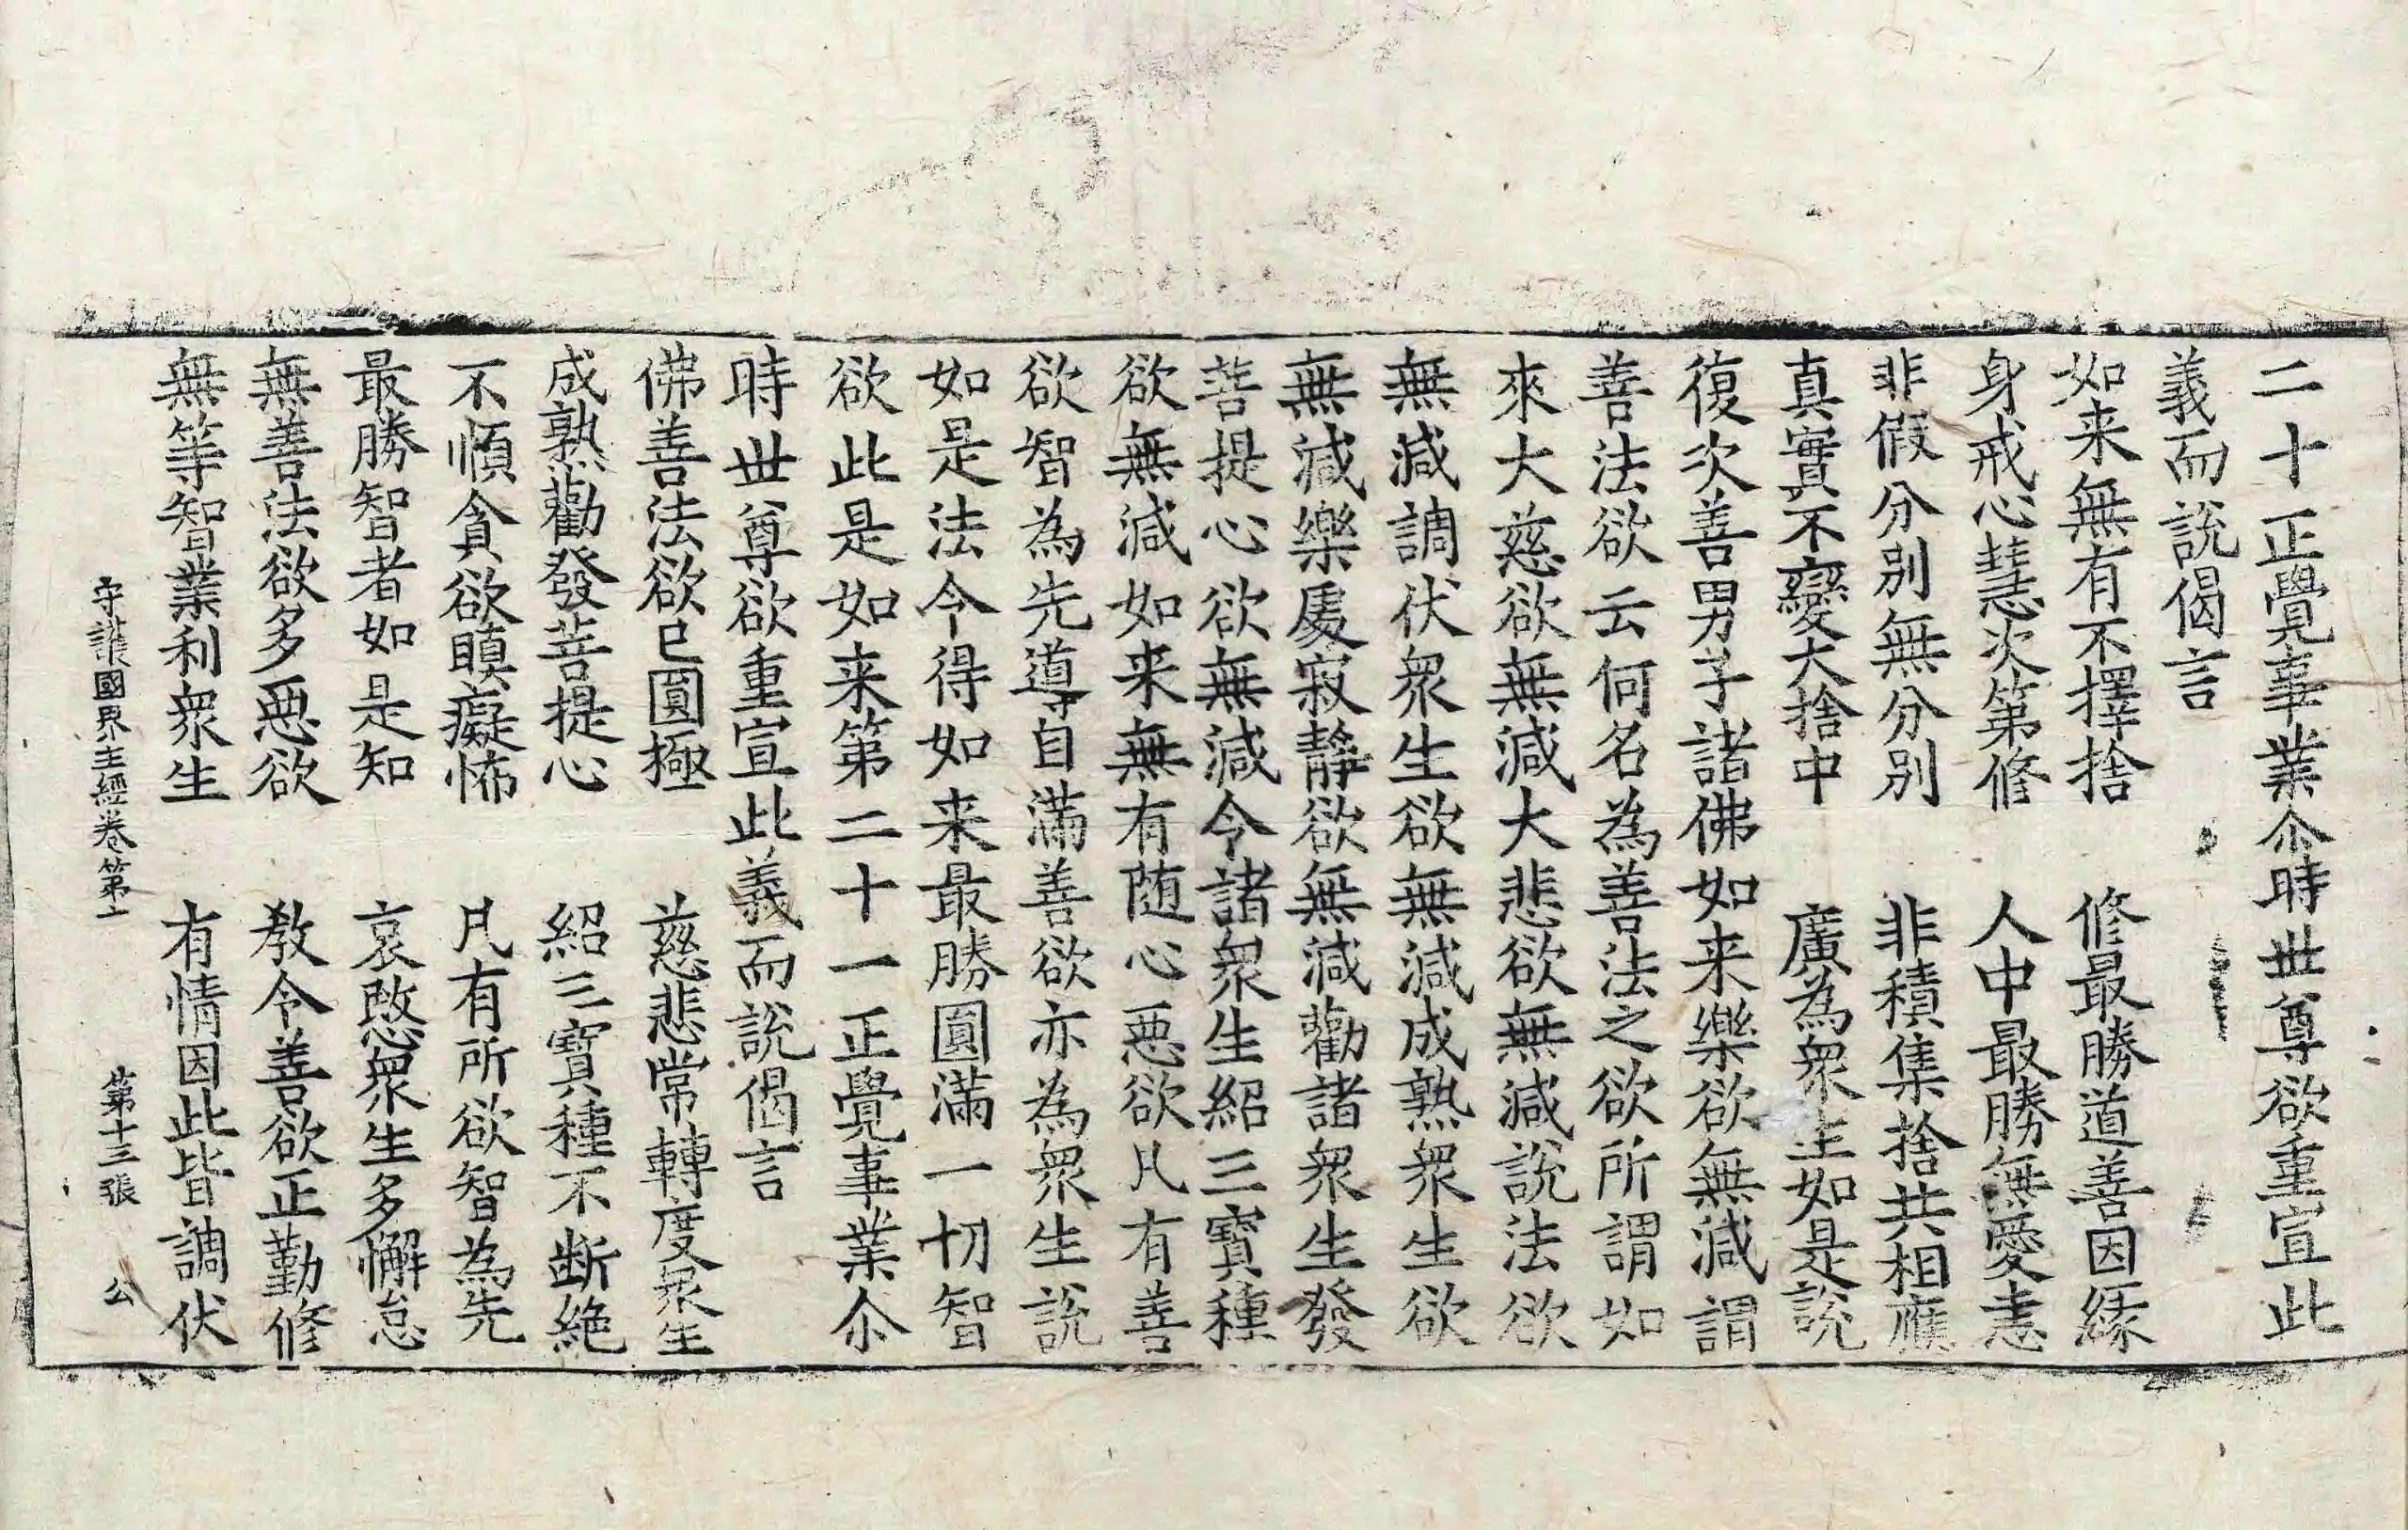 二十正覺事業尒時世尊欲重宣此
義而說偈言
如来無有不擇捨　修最勝道善因緣
身戒心慧次第修　人中最勝無愛恚
非假分別無分別　非積集捨共相應
真實不變大捨中　廣為衆生如是說
復次善男子諸佛如来樂欲無減謂
善法欲云何名為善法之欲所謂如
來大慈欲無減大悲欲無減說法欲
無減調伏衆生欲無減成熟衆生欲
無減樂處寂靜欲無減勸諸衆生發
菩提心欲無減令諸衆生紹三寶種
欲無減如来無有随心惡欲凡有善
欲智為先導自滿善欲亦為衆生說
如是法令得如来最勝圓滿一切智
欲此是如来第二十一正覺事業尒
時世尊欲重宣此義而說偈言
佛善法欲已圓極　慈悲常轉度衆生
成熟勸發菩提心　紹三寶種不断絶
不順貪欲瞋癡怖　凡有所欲智為先
最勝智者如是知　哀愍衆生多懈怠
無善法欲多惡欲　教令善欲正勤修
無等智業利衆生　有情因此皆調伏
守護國界主經卷第　第十三張　公